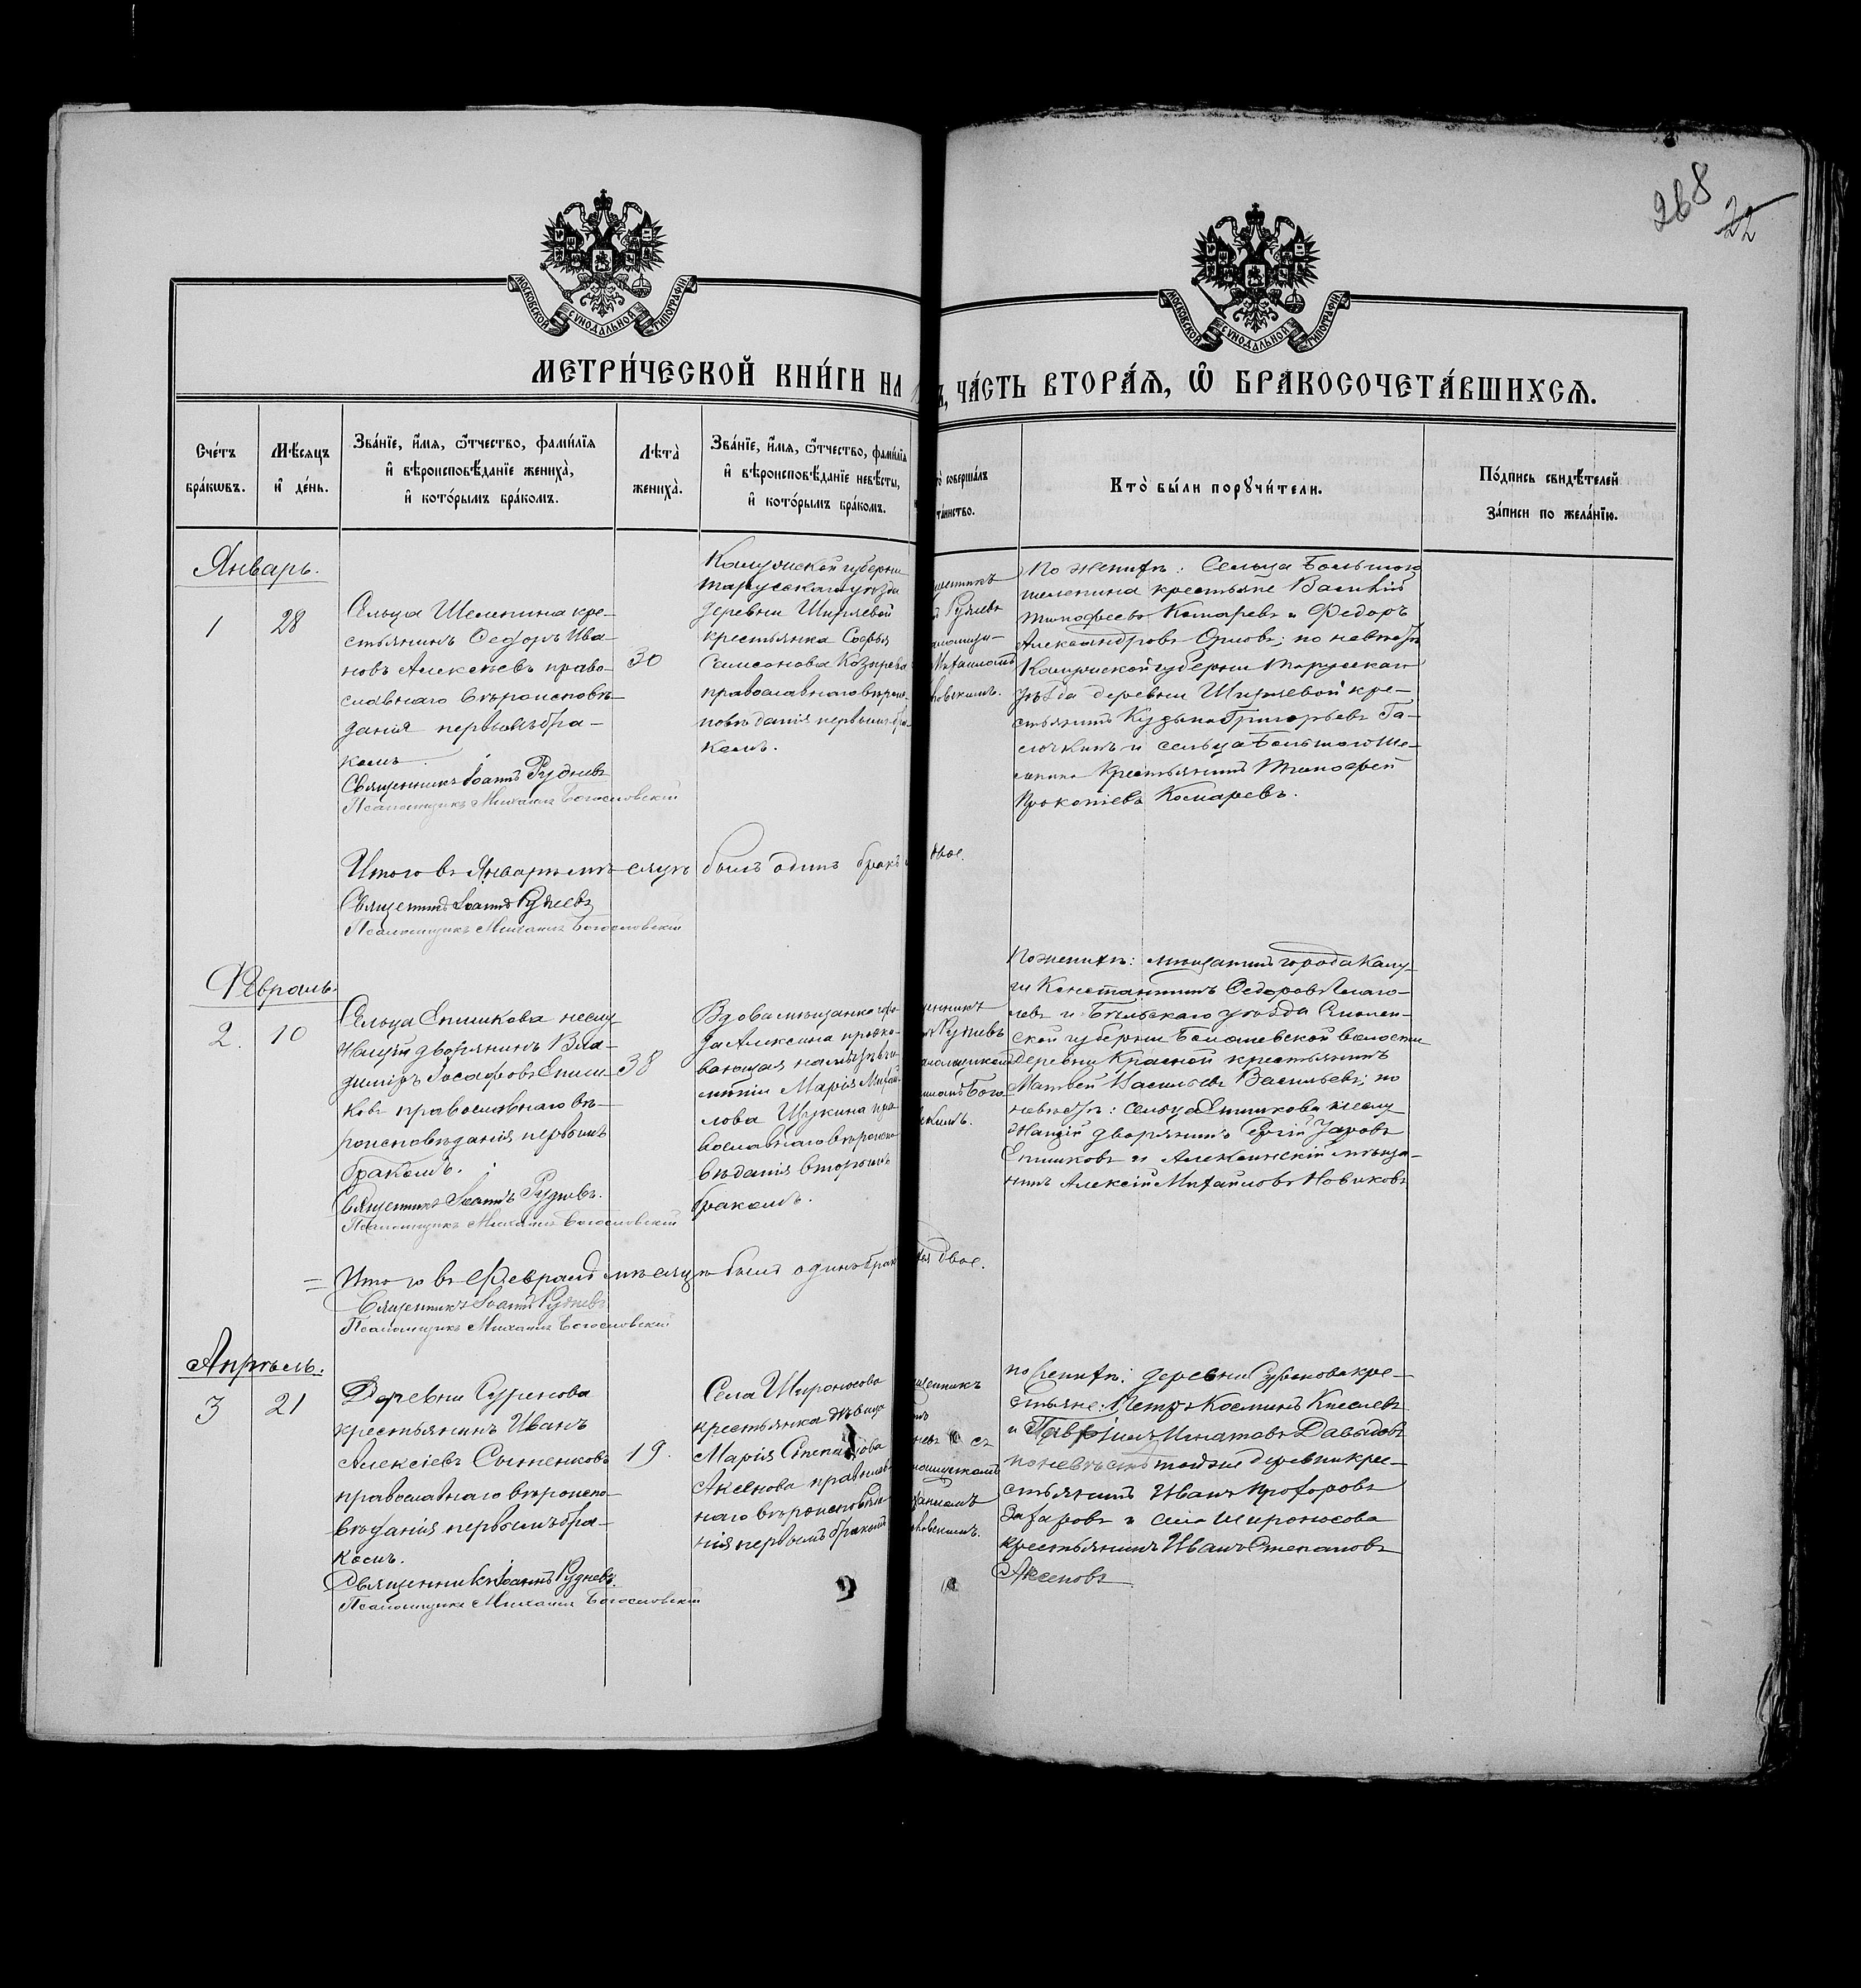 268
22
МОСКОВСКОЙ СѴНОДАЛЬНОЙ ТИПОГРАФІИ
МОСКОВСКОЙ СѴНОДАЛЬНОЙ ТИПОГРАФІИ
МЕТРИ́ЧЕСКОЙ КНИ́ГИ НА
ЧА́СТЬ ВТОРА́Ѧ, Ѽ БРАКОСОЧЕТА́ВШИХСѦ.
Сче́тъ
бра́кѡвъ.
Мѣ́сяцъ
и҆ де́нь.
Зва́нїе, и҆́мя, ѻ҆́тчество, фами́лїя
и҆ вѣроисповѣ́данїе жениха̀,
и҆ кото́рымъ бра́комъ.
Лѣта̀
жениха̀.
Зва́нїе, и҆́мя, ѻ҆́тчество, фами́лїя
и҆ вѣроисповѣ́данїе невѣ́сты,
и҆ кото́рымъ бра́комъ.
соверша́лъ
та́инство.
Кто̀ бы́ли порꙋчи́тели.
По́дпись свидѣ́телей
за́писи по жела́нїю.
Январь.
1
28
Сельца Шелепина кре-
стьянинъ Ѳеодоръ Ива-
новъ Алексѣевъ право-
славнаго вѣроисповѣ-
данія первымъ бра-
комъ.
Священникъ Іоаннъ Рудневъ
Псаломщикъ Михаилъ Богословскій
30
Калужской губерніи
Тарусскаго уѣзда
деревни Ширяевой
крестьянка Софья
Самсонова Козырева
православнаго вѣроис-
повѣданія первымъ бра-
комъ.
По женихѣ: Сельца Большого
Шелепина крестьяне Василій
Тимофеевъ Комаревъ и Федоръ
Александровъ Орловъ; по невѣстѣ
Калужской губерніи Тарусскаго
уѣзда деревни Ширяевой кре-
стьянинъ Кузьма Григорьевъ Га-
лочкинъ и сельца Большого Ше-
лепина крестьянинъ Тимофей
Прокопіевъ Комаревъ.
Итого въ Январѣ мѣсяцѣ былъ одинъ бракъ двое.
Священникъ Іоаннъ Рудневъ
Псаломщикъ Михаилъ Богословскій
Февраль.
2.
10
Сельца Епишкова неслу-
жащій дворянинъ Вла-
диміръ Іосафовъ Епиш-
ковъ православнаго вѣ-
роисповѣданія первымъ
бракомъ.
Священникъ Іоаннъ Рудневъ.
Псаломщикъ Михаилъ Богословскій
38
Вдова мѣщанка горо-
да Алексина прожи-
вающая
Марія Михай-
лова Щукина пра-
вославнаго вѣроиспо-
вѣданія вторымъ
бракомъ.
По женихѣ: мѣщанинъ города Калу-
ги Константинъ Ѳедоровъ
и Бѣльскаго уѣзда Смолен-
ской губерніи волости
деревни Красной крестьянинъ
Матвей Васильевъ Васильевъ; по
невѣстѣ: сельца Епишкова неслу-
жащій дворянинъ
Епишковъ и Алексинскій мѣща-
нинъ Алексій Михайловъ Новиковъ
Итого въ Февралѣ мѣсяцѣ былъ одинъ бракъ двое.
Священникъ Іоаннъ Рудневъ
Псаломщикъ Михаилъ Богословскій
Апрѣль.
3
21
Деревни Суренова
крестьянинъ Иванъ
Алексіевъ Сытенковъ
православнаго вѣроиспо-
вѣданія первымъ бра-
комъ.
Священникъ Іоаннъ Рудневъ.
Псаломщикъ Михаилъ Богословскій
19.
Села Широносова
крестьянка дѣвица
Марія Степанова
Аксенова православ-
наго вѣроисповѣда-
нія первымъ бракомъ
по женихѣ: деревни Суренова кре-
стьяне: Петръ Косминъ Киселевъ
и Гавріилъ Игнатовъ Давыдовъ
по невѣстѣ той же деревни кре-
стьянинъ Иванъ Прохоровъ
Захаровъ и села Широносова
крестьянинъ Иванъ Степановъ
Аксеновъ